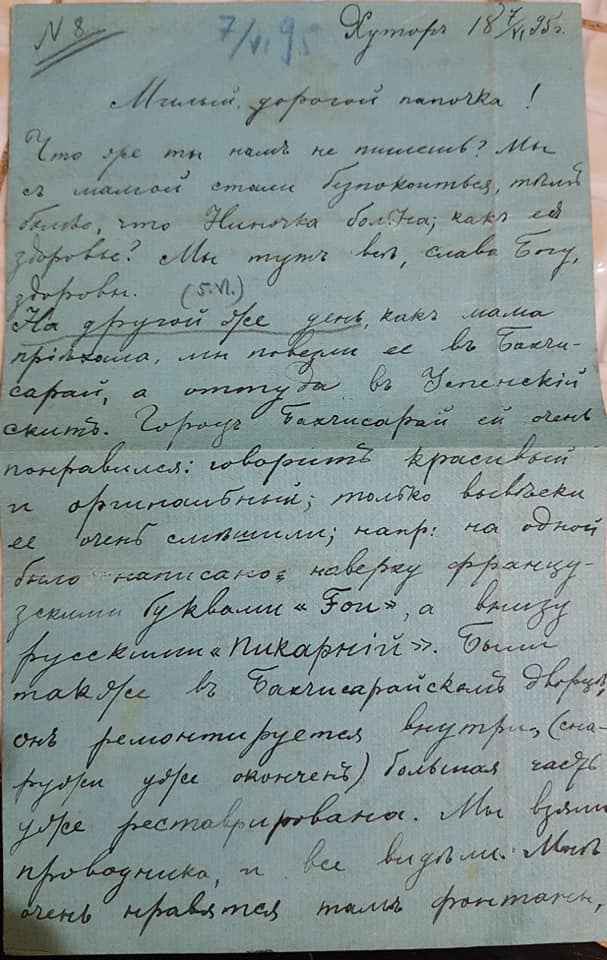 N 8
7/VI 95
Хуторъ 18 7/VI 95 г.
Милый, дорогой папочка!
Что же ты намъ не пишешь? Мы
съ мамой стали безпокоиться, тѣмъ
болѣе, что Ниночка больна; какъ ея
здоровье? Мы тутъ всѣ, слава Богу,
здоровы.
(5.VI.)
На другой же день, какъ мама
пріѣхала, мы повезли ее въ Бахчи-
сарай, а оттуда въ Успенскій
скитъ. Городъ Бахчисарай ей очень
понравился: говоритъ красивый
и оригинальный; только вывѣски
ее очень смѣшили; напр: на одной
было написано: наверху францу-
зскими буквами «Fou», а внизу
русскими «Пикарній». Были
также въ Бахчисарайскомъ дворцѣ,
онъ ремонтируется внутри, (сна-
ружи уже оконченъ) большая часть
уже реставрирована. Мы взяли
проводника, и все видѣли. Мнѣ
очень нравятся тамъ фонтаны,